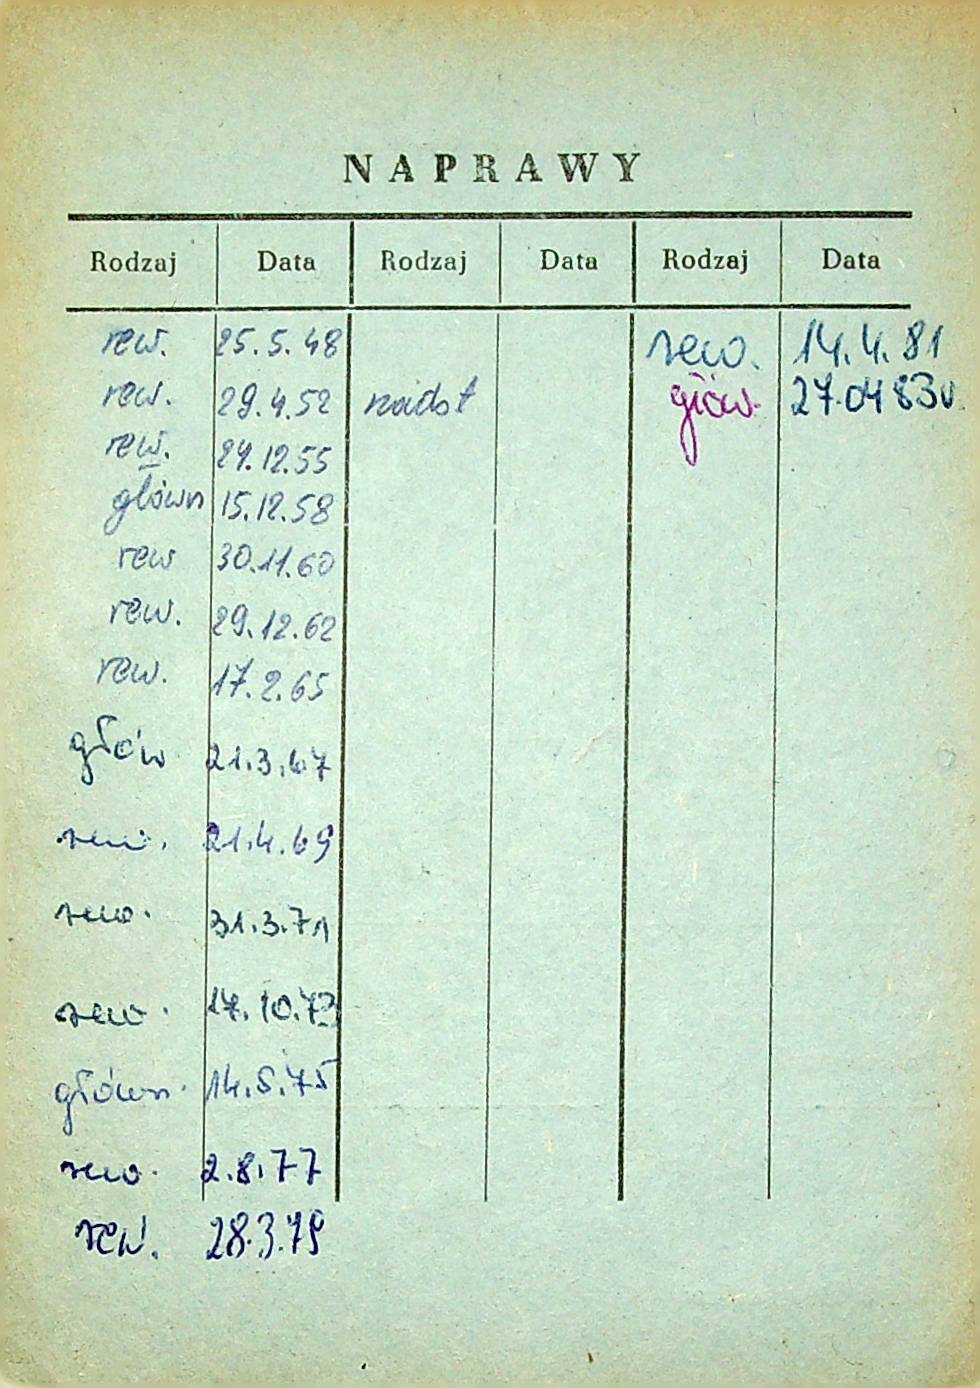 NAPRAWY
Rodzaj Data Rodzaj Data Rodzaj Data
rew. 25.5.48 rew. 14.4.81
rew. 29.4.52 nadst głów. 27.04 83
rew. 29.12.55
główn 15.12.58
rew 30.11.60
rew. 29.12.62
rew. 17.2.65
głów 21.3.67
rew. 21.4.69
rew. 31.3.71
rew. 17.10.73
główn. 14.5.75
rew. 2.8.77
rew. 28.3.79